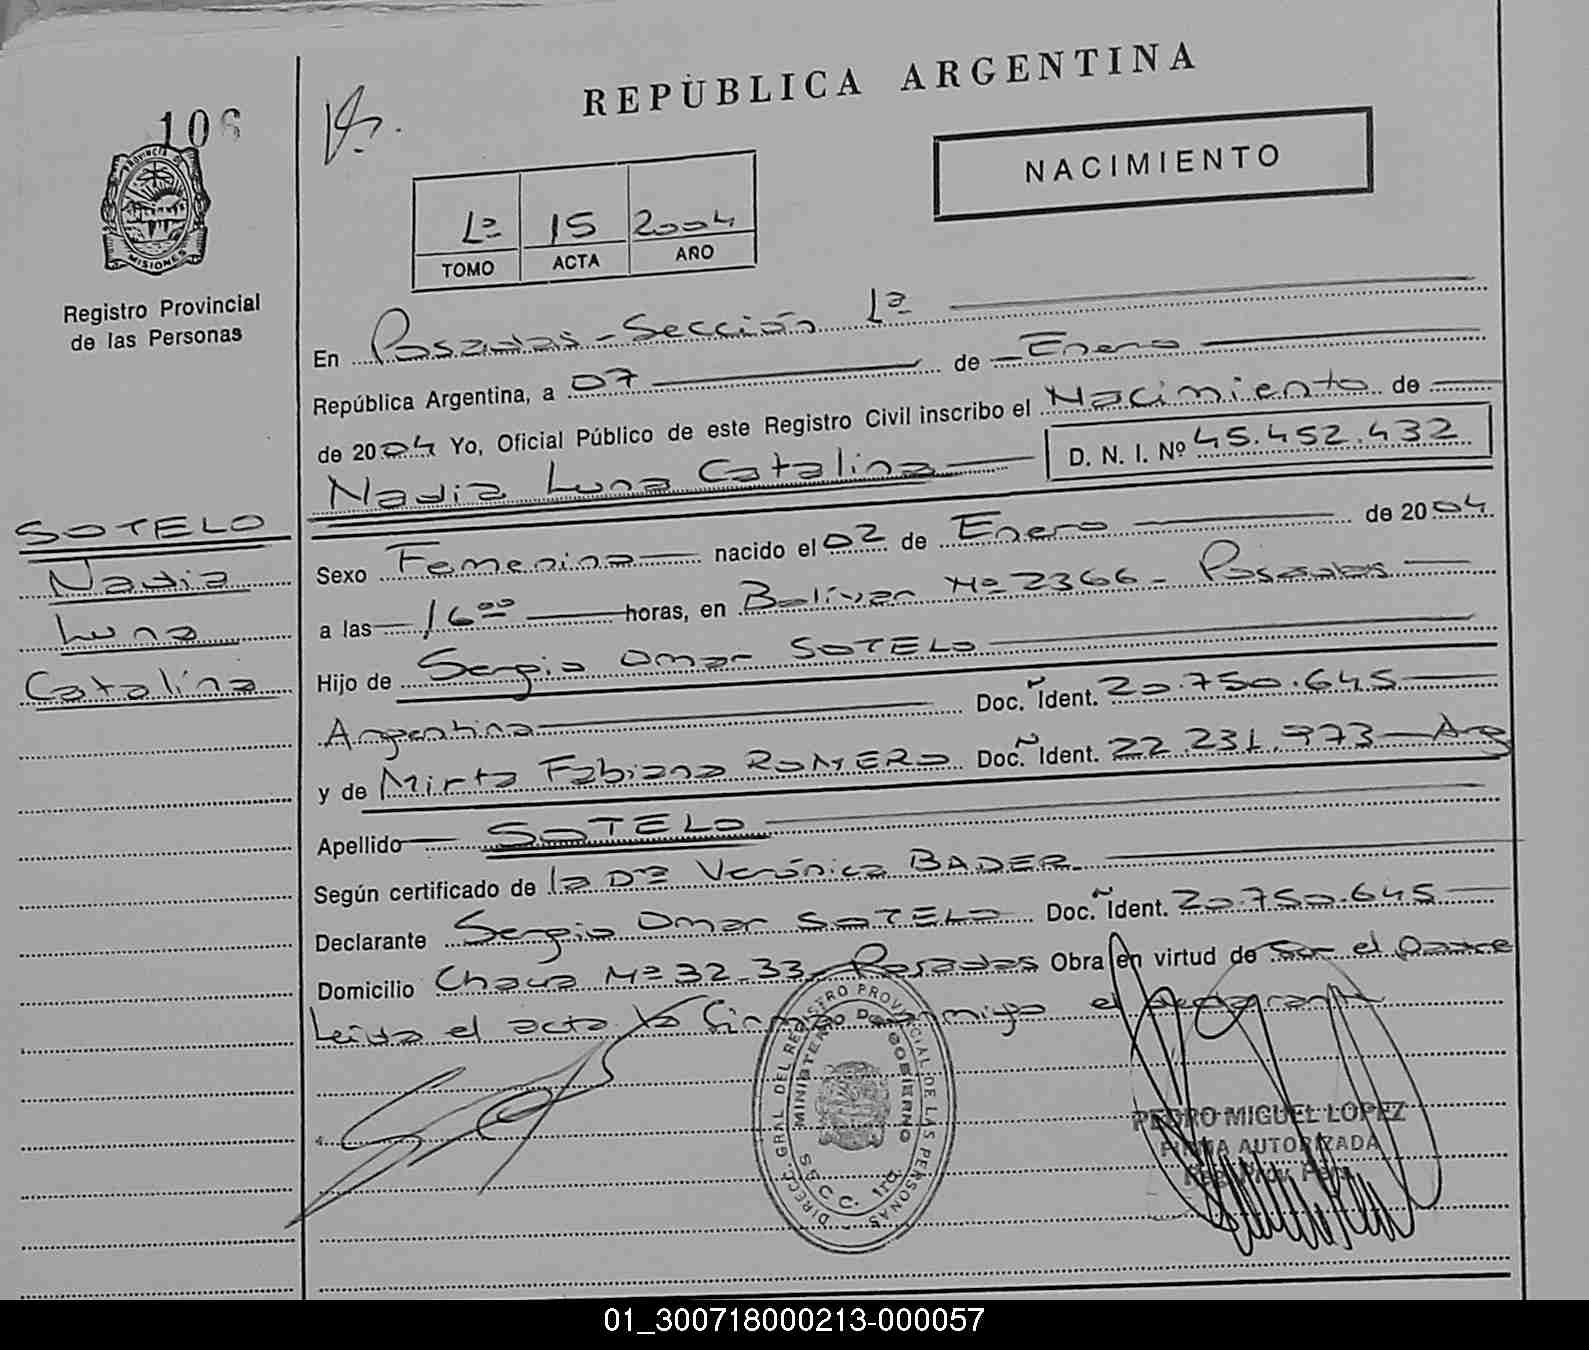 REPÚBLICA ARGENTINA
106
NACIMIENTO
PROVINCIA DE
MISIONES
1ª 15 2004
TOMO ACTA AÑO
Registro Provincial
de las Personas
En Posadas - Sección 1ª
República Argentina, a 07 de Enero
de 2004 Yo, Oficial Público de este Registro Civil inscribo el Nacimiento de
Nadia Luna Catalina D. N. I. Nº 45.452.432
SOTELO
Nadia
Luna
Catalina
Sexo Femenino nacido el 02 de Enero de 2004
a las 16 00 horas, en Bolívar Nº 2366 - Posadas
Hijo de Sergio Omar SOTELO
Argentino Doc. Ident. 20.750.645
y de Mirta Fabiana ROMERO Doc. Ident. 22.231.973 Arg
Apellido SOTELO
Según certificado de la Dra Verónica BADER
Declarante Sergio Omar SOTELO Doc. Ident. 20.750.645
Domicilio Chacra Nº 32-33 - Posadas Obra en virtud de Ser el padre
Leida el acta la Firma conmigo el declarante
DIRECC. GRAL DEL REGISTRO PROVINCIAL DE LAS PERSONAS
MINISTERIO DE GOBIERNO
S C C.
PEDRO MIGUEL LOPEZ
FIRMA AUTORIZADA
01_300718000213-000057